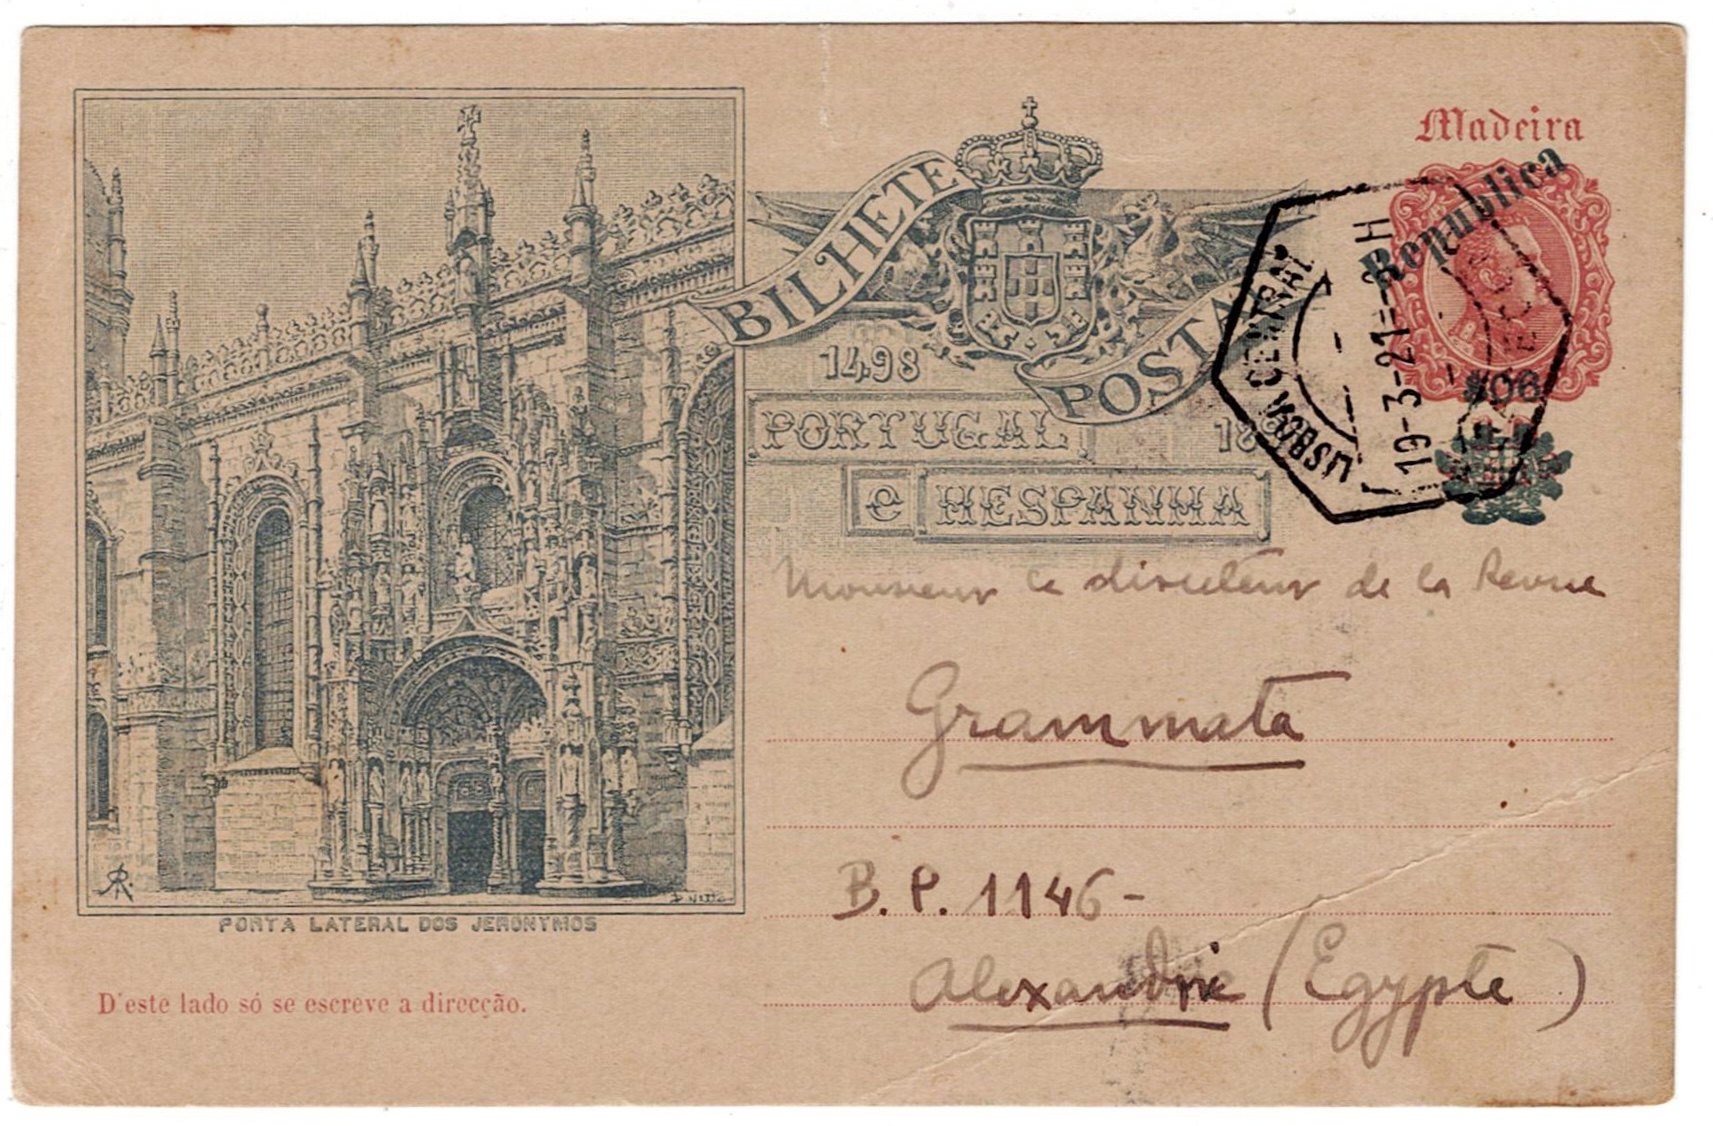 Madeira
Republica
BILHETE POSTAL
1498
PORTUGAL
E HESPANHA
LISBOA CENTRAL
19-3-21
H
$06
Monsieur le directeur de la Revue
Grammata
B.P. 1146-
Alexandrie (Egypte)
PORTA LATERAL DOS JERONYMOS
D'este lado só se escreve a direcção.